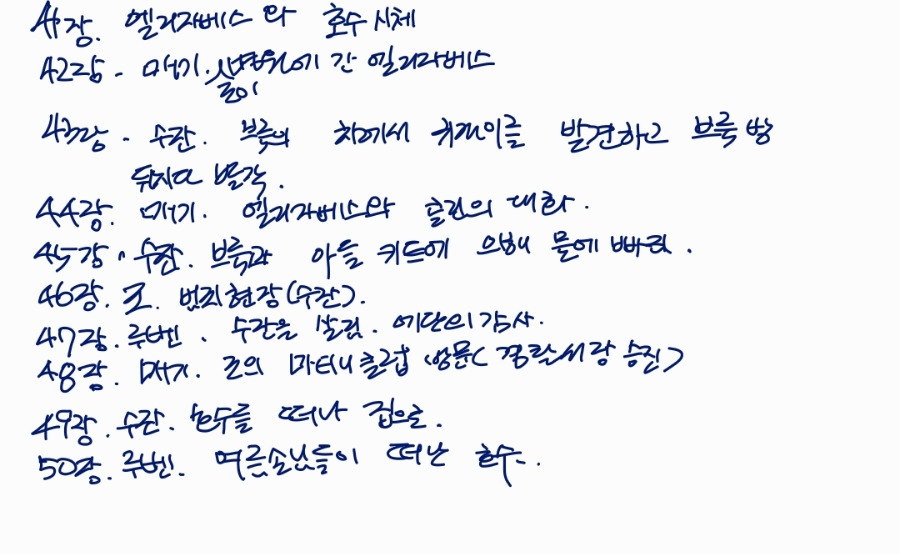 41장. 엘리자베스와 호수 시체
42장. 매기. 상범위에 간 엘리자베스
숲이
43장. 수잔. 브룩의 차에서 귀걸이를 발견하고 브룩 방
뒤지다 발각.
44장. 매기. 엘리자베스와 클린의 대화.
45장. 수잔. 브룩과 아들 키드에 의해 물에 빠짐.
46장. 조. 범죄현장(수잔).
47장. 루벤. 수잔을 살림. 에단의 감사.
48장. 매기. 조의 마티니클럽 방문(경찰서장 승진)
49장. 수잔. 호수를 떠나 집으로.
50장. 루벤. 여름손님들이 떠난 호수.